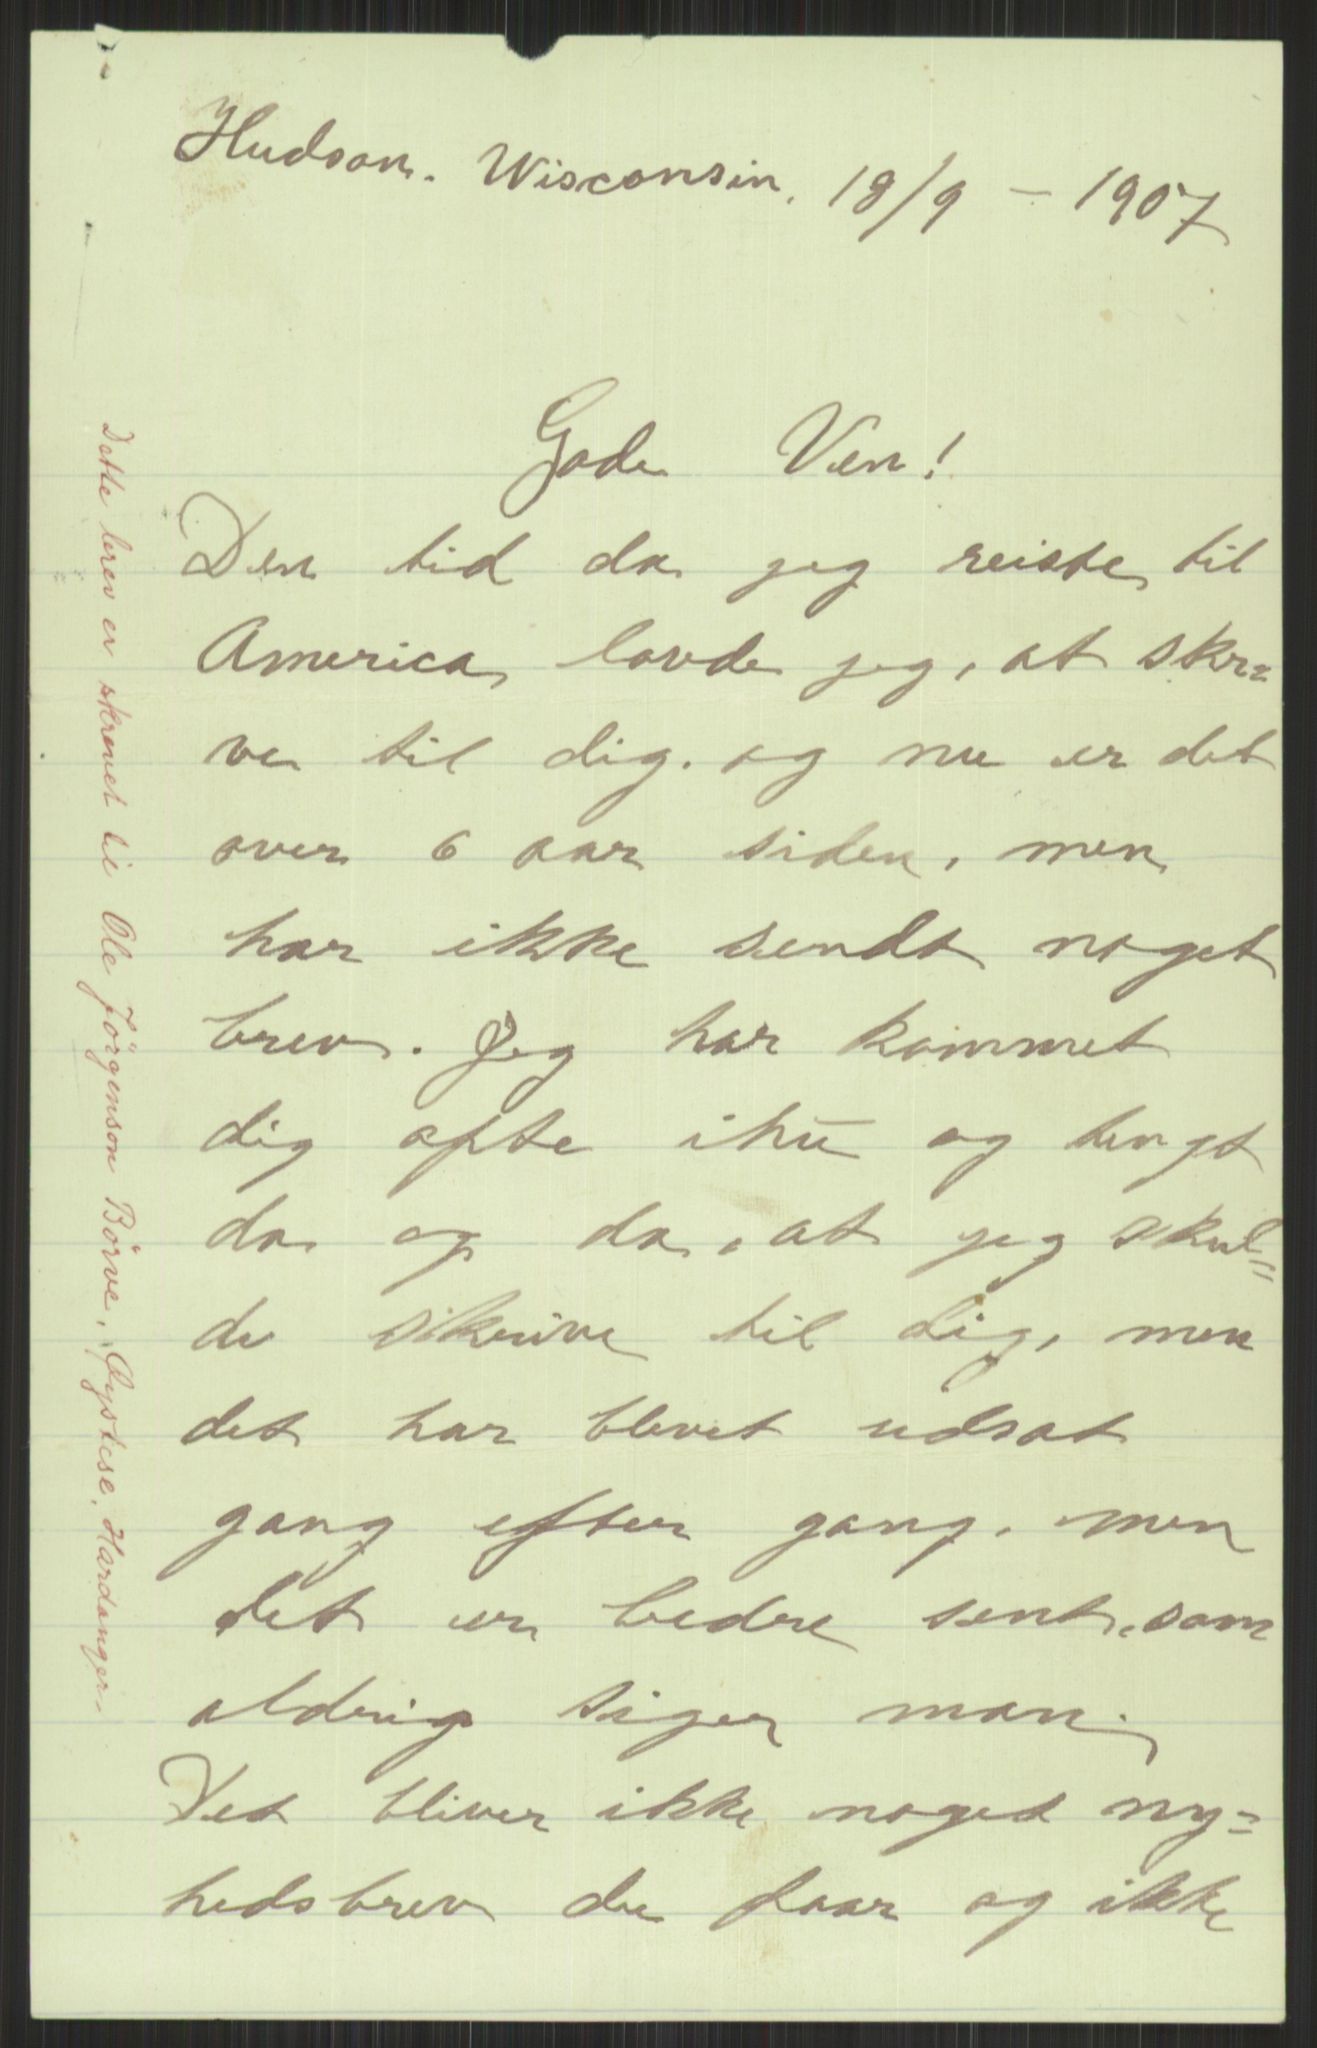 Hudson. Wisconsin, 18/9 – 1907
Gode Ven!
Den tid da jeg reiste til
America lovde jeg, at skri=
ve til dig. og nu er det
over 6 aar siden, men
har ikke sendt noget
brev. Jeg har kommet
dig ofte ihu og tengt
da og da, at jeg skul=
de skrive til dig, men
det har blevet udsat
gang efter gang. men
det er bedre sent, som
aldrig siger man.
Det bliver ikke noged ny=
hedsbrev du faar og ikke
Dette brev er skrevet til Ole Jörgenson Börve, Öystese, Hardanger.